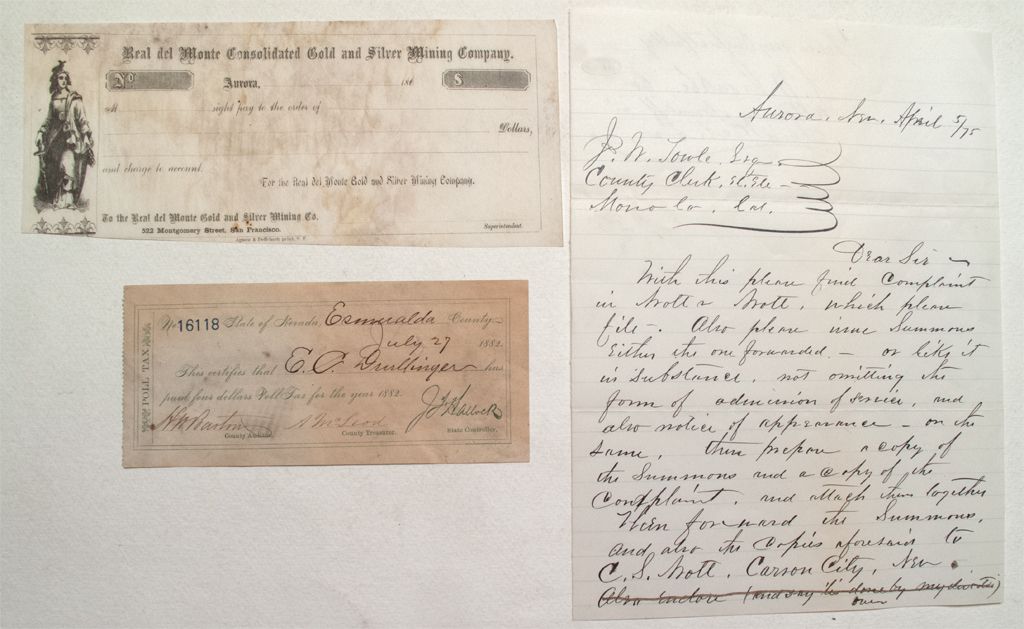 Real del Monte Consolidated Gold and Silver Mining Company.
No
Aurora, 186
$
At sight pay to the order of
Dollars,
and charge to account.
For the Real del Monte Gold and Silver Mining Company.
To the Real del Monte Gold and Silver Mining Co.
522 Montgomery Street, San Francisco.
Superintendent.
POLL TAX
No 16118 State of Nevada, Esmeralda County
July 27 1882.
This certifies that E. C. Drullinger has
paid four dollars Poll Tax for the year 1882.
H. W. Barton A McLeod J F Hallock
County Auditor. County Treasurer. State Controller.
Aurora, Nev, April 5/75
J. W. Towle, Esq
County Clerk, Et. Etc
Mono Co, Cal.
Dear Sir
With this please find Complaint
in Mott v Mott, which please
file-. Also please issue Summons
Either the one forwarded. - or like it
in substance, not omitting the
form of admission of service, and
also notice of appearance - on the
same, then prepare a copy of
the Summons and a copy of the
Complaint, and attach them together
Then forward the Summons,
and also the Copies aforesaid to
C. S. Mott, Carson City, Nev.
Also enclose (and say tis done by my direction)
over